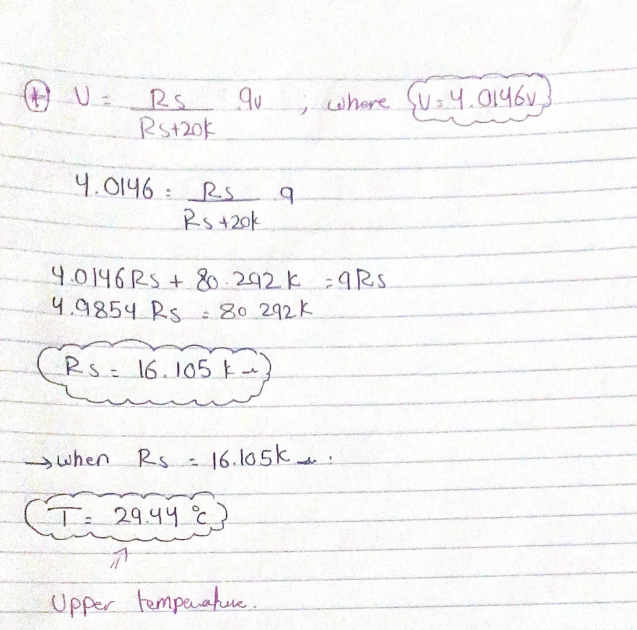 (*) V = Rs / (Rs+20k) 9v , where V=4.0146v
4.0146 = Rs / (Rs+20k) 9
4.0146Rs + 80.292k = 9Rs
4.9854 Rs = 80.292k
Rs = 16.105 kΩ
→ when Rs = 16.105kΩ :
T = 29.44 °c
Upper temperature.